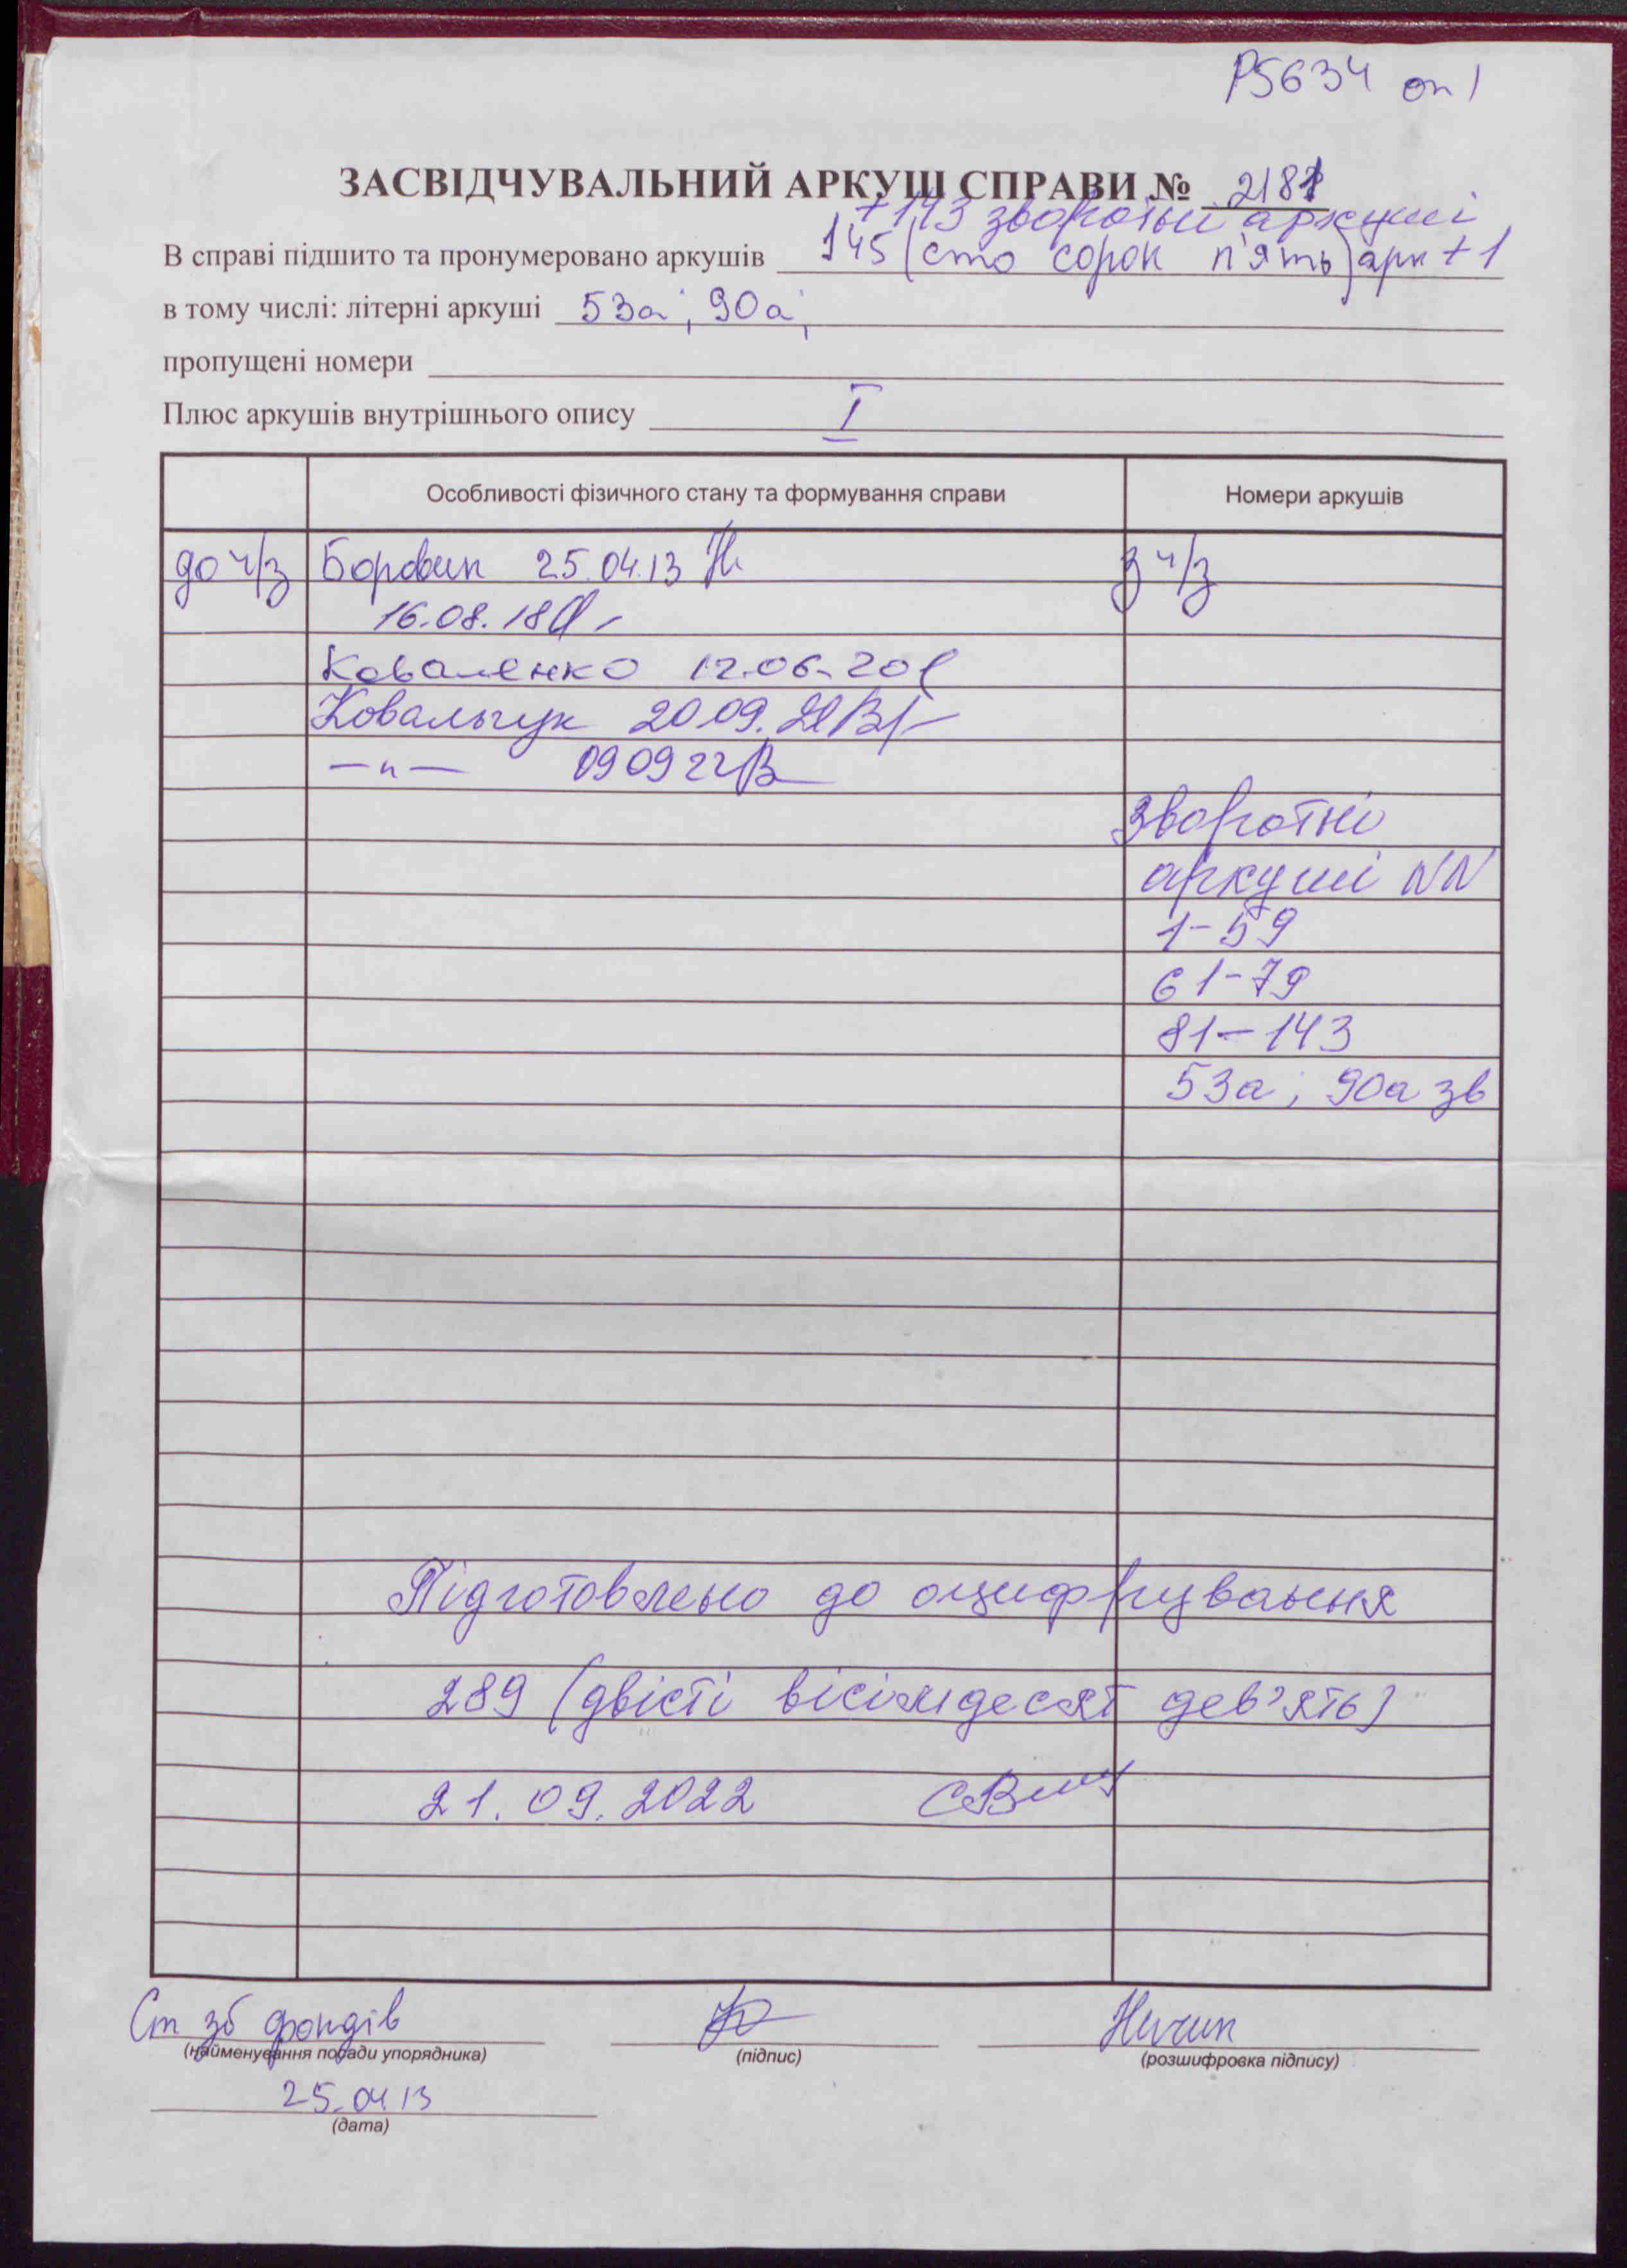 Р5634 оп 1
ЗАСВІДЧУВАЛЬНИЙ АРКУШ СПРАВИ № 2181
+143 зворотні аркуші
В справі підшито та пронумеровано аркушів 145 (сто сорок п'ять) арк + 1
в тому числі: літерні аркуші 53а; 90а;
пропущені номери
Плюс аркушів внутрішнього опису I
Особливості фізичного стану та формування справи Номери аркушів
до ч/з Боровик 25.04.13 з ч/з
16.08.18
Коваленко 12.06.20
Ковальчук 20.09.21
—"— 09 09 22
Зворотні
аркуші NN
1-59
61-79
81-143
53а; 90а зв
Підготовлено до оцифрування
289 (двісті вісімдесят дев'ять)
21.09.2022
Ст зб фондів
(найменування посади упорядника) (підпис) (розшифровка підпису)
25.04.13
(дата)